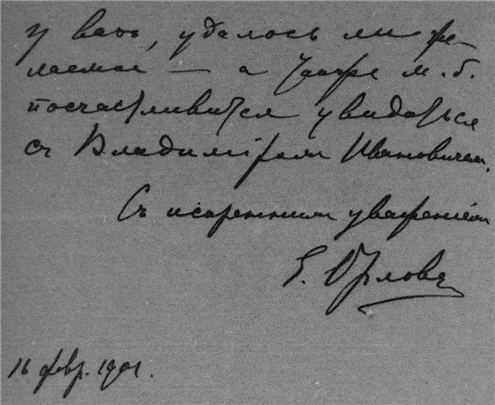 у васъ, удалось ли же-
лаемое — а также м. б.
посчастливится увидаться
съ Владиміромъ Ивановичемъ.
Съ искреннимъ уваженіемъ
Е. Орловъ
16 февр. 1901.